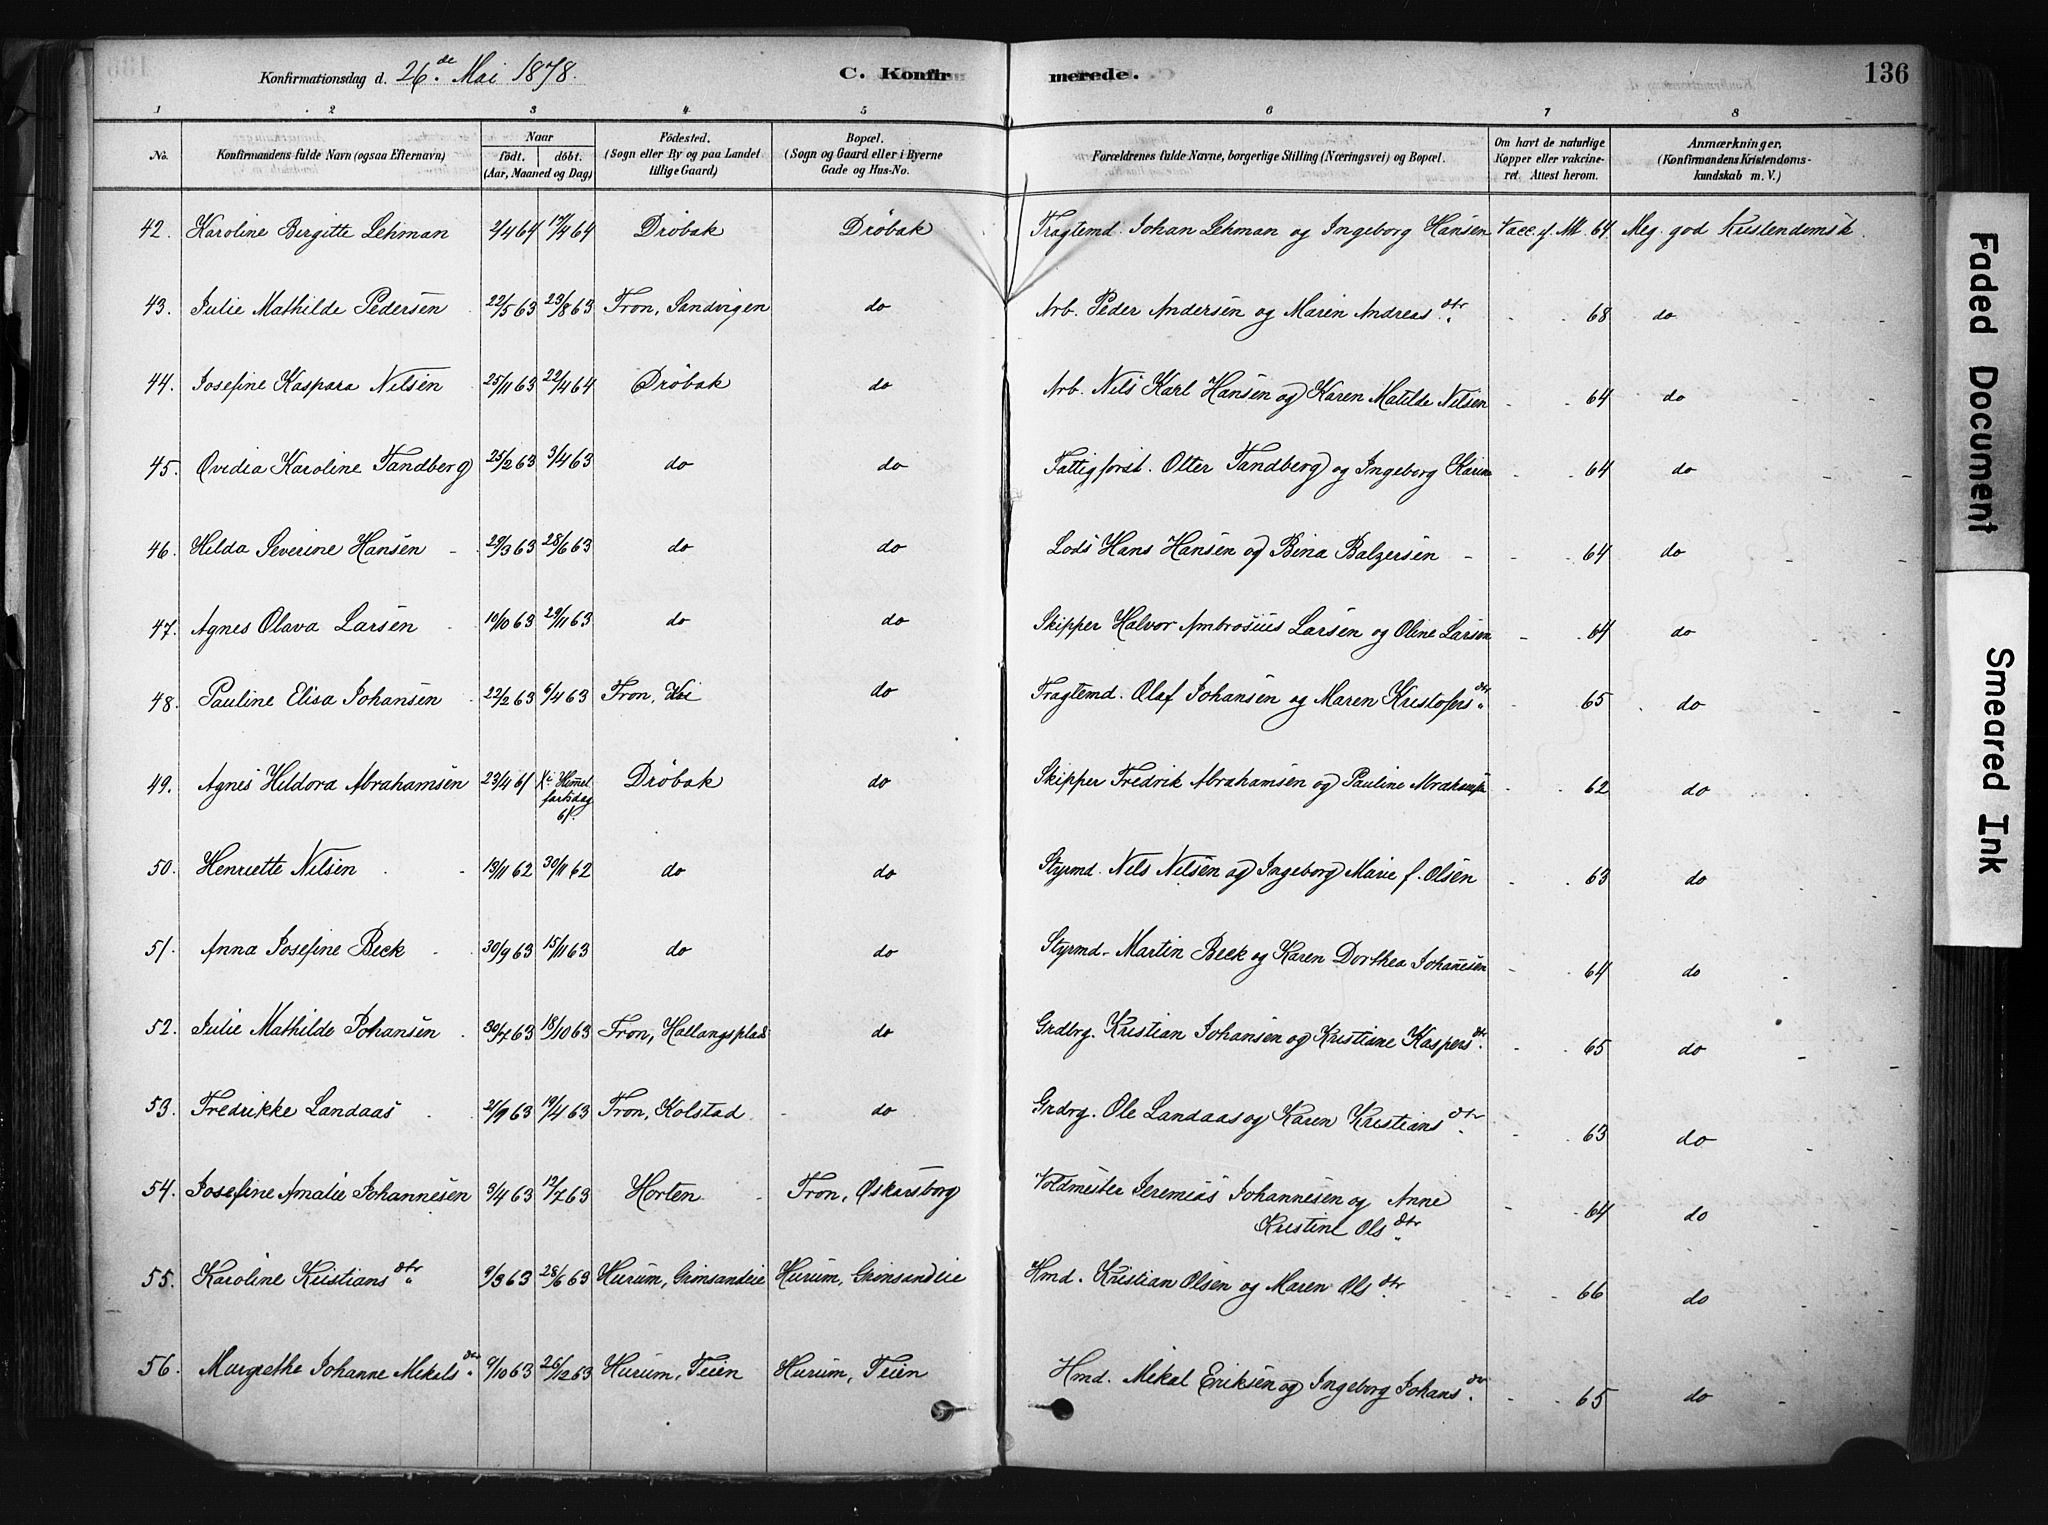 Konfirmationsdag d. 26.de Mai 1878. C. Konfirmerede. 136
1 2 3 4 5 6 7 8
No. Konfirmandens fulde Navn (ogsaa Efternavn) Naar født. døbt. (Aar, Maaned og Dag) Fødested. (Sogn eller By og paa Landet tillige Gaard) Bopæl. (Sogn og Gaard eller i Byerne Gade og Hus-No. Forældrenes fulde Navne, borgerlige Stilling (Næringsvei) og Bopæl. Om havt de naturlige Kopper eller vakcineret. Attest herom. Anmærkninger. (Konfirmandens Kristendomskundskab m. V.)
42. Karoline Birgitte Lehman 2/4 64 17/4 64 Drøbak Drøbak Fragtemd. Johan Lehman og Ingeborg Hansen Vacc. f. Att. 64 Meg. god Kristendomsk.
43. Julie Mathilde Pedersen 22/5 63 23/8 63 Fron, Sandvigen do Arb. Peder Andersen og Maren Andreas dtr. - - 68 do -
44. Josefine Kaspara Nilsen 25/11 63 22/4 64 Drøbak do Arb. Nils Karl Hansen og Karen Matilde Nilsen - - 64 do -
45. Ovidia Karoline Tandberg 25/2 63 3/4 63 do do Fattigforst. Otter Tandberg og Ingeborg Karine - - 64 do -
46. Hilda Severine Hansen - 29/3 63 28/6 63 do do Lods Hans Hansen og Bina Balzersen - - - 64 do -
47. Agnes Olava Larsen 10/10 63 29/11 63 do do Skipper Halvor Ambrosius Larsen og Oline Larsen - - 64 do -
48. Pauline Elisa Johansen 22/2 63 6/4 63 Fron, do Fragtemd. Olaf Johansen og Maren Kristofers dtr. - 65 do -
49. Agnes Hildora Abrahamsen 23/4 61 Kr. Himmelfartsdag 61. Drøbak do Skipper Fredrik Abrahamsen og Pauline Abrahamsen - - 62 do -
50. Henriette Nilsen - 13/11 62 30/11 62 do do Styrmd. Nils Nilsen og Ingeborg Marie f. Olsen - - 63 do -
51. Anna Josefine Beck - 30/9 63 15/11 63 do do Styrmd. Martin Beck og Karen Dorthea Johannesen - - 64 do -
52. Julie Mathilde Johansen 30/7 63 18/10 63 Fron, Hallangsplads do Grdbrg. Kristian Johansen og Kristiane Kaspers dtr. - - 65 do -
53. Fredrikke Landaas 63 19/4 63 Fron, Kolstad - do Grdrg. Ole Landaas og Karen Kristians dtr. - - 63 do -
54. Josefine Amalie Johannesen 3/4 63 12/7 63 Horten - Fron, Oskarsborg Voldmester Jeremias Johannesen og Anne
Kristine Ols dtr. - - 64 do -
55. Karoline Kristians dtr. 9/3 63 28/6 63 Hurum, Grimsandeie Hurum, Grimsandeie Hmd. Kristian Olsen og Maren Ols dtr. - - 66 do -
56. Margrethe Johanne Mikels dtr. 9/10 63 26/12 63 Hurum, Teien Hurum, Teien Hmd. Mikal Eriksen og Ingeborg Johans dtr. - - 65 do -
Faded Document
Smeared Ink